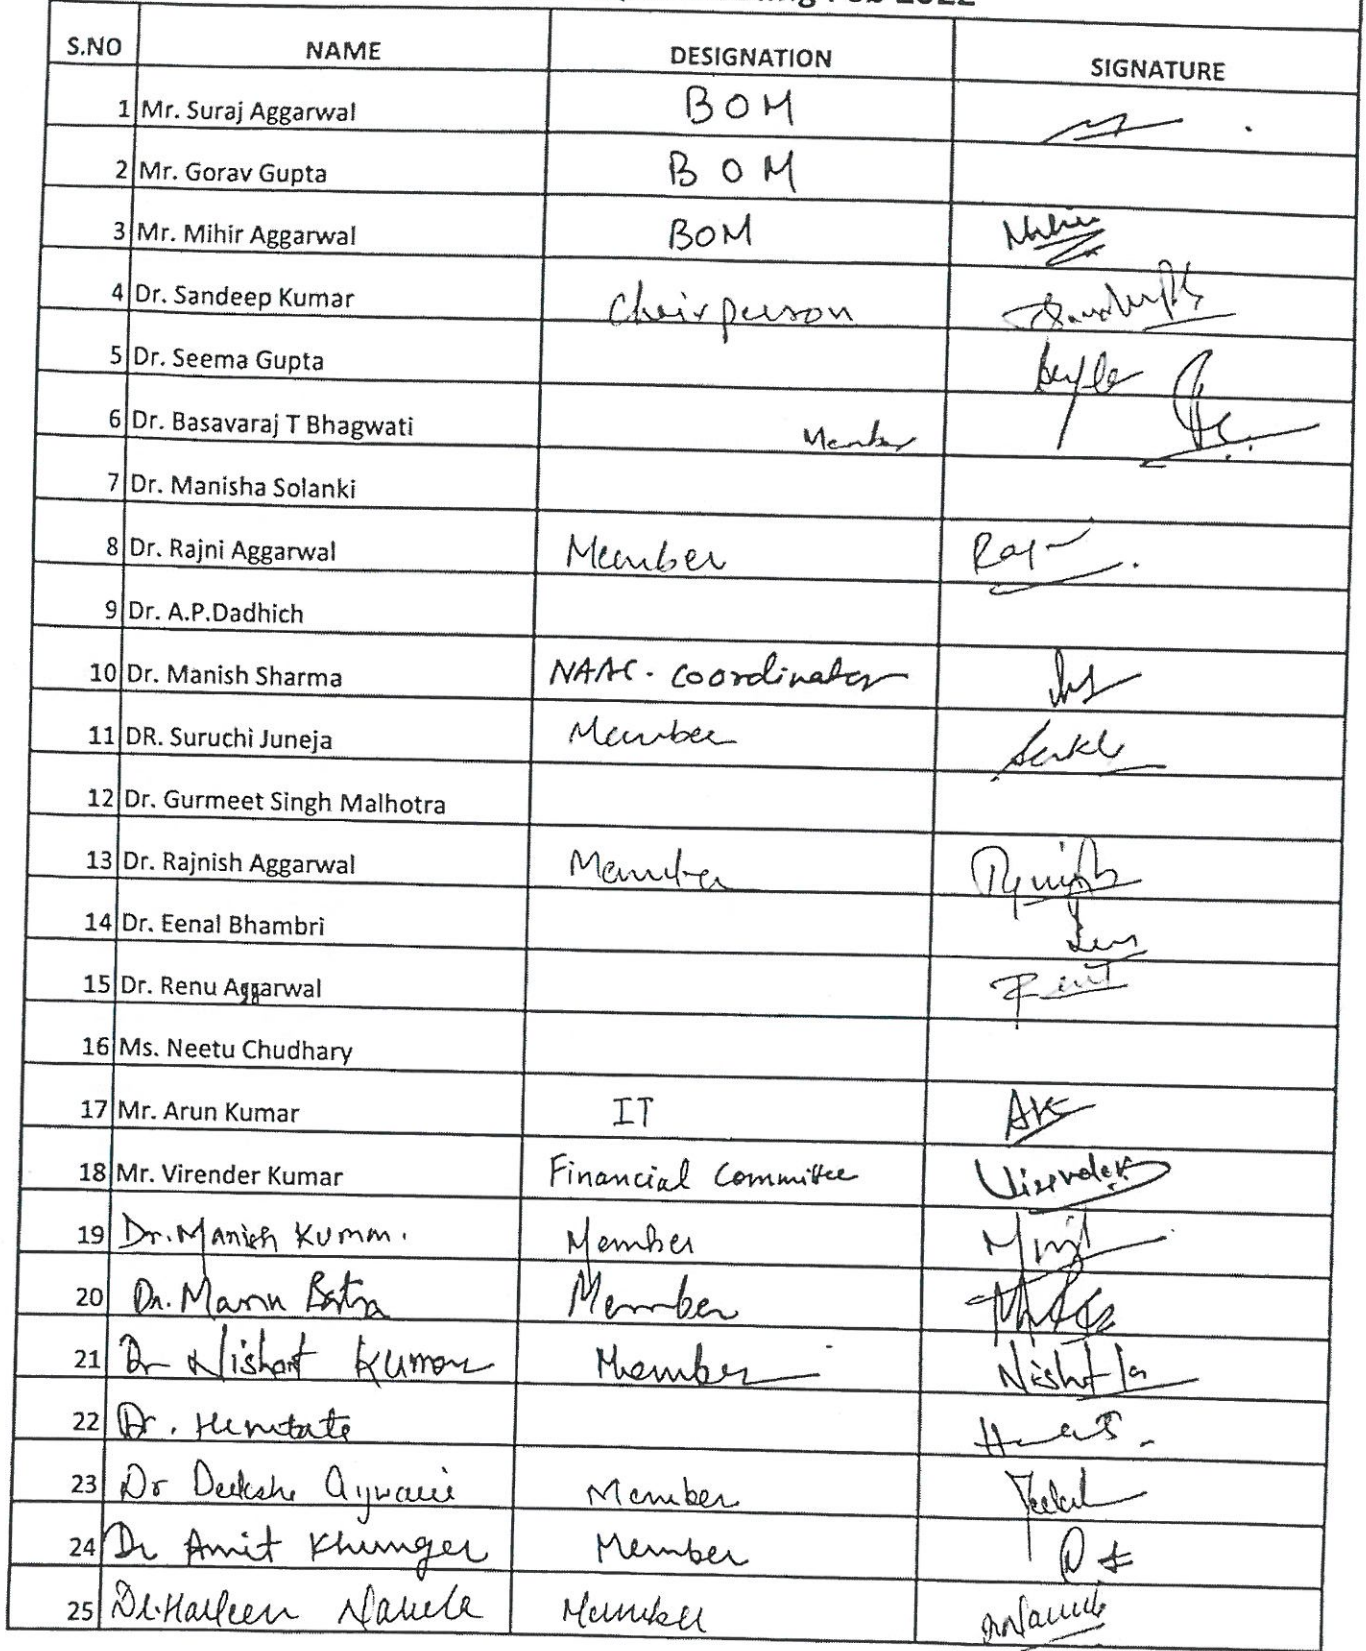 Feb 2022
S.NO NAME DESIGNATION SIGNATURE
1 Mr. Suraj Aggarwal BOM
2 Mr. Gorav Gupta BOM
3 Mr. Mihir Aggarwal BOM Mihir
4 Dr. Sandeep Kumar Chairperson
5 Dr. Seema Gupta
6 Dr. Basavaraj T Bhagwati Member
7 Dr. Manisha Solanki
8 Dr. Rajni Aggarwal Member
9 Dr. A.P.Dadhich
10 Dr. Manish Sharma NAAC. coordinator
11 DR. Suruchi Juneja Member
12 Dr. Gurmeet Singh Malhotra
13 Dr. Rajnish Aggarwal Member
14 Dr. Eenal Bhambri
15 Dr. Renu Aggarwal
16 Ms. Neetu Chudhary
17 Mr. Arun Kumar IT AK
18 Mr. Virender Kumar Financial Committee Virender
19 Dr. Manish Kumar. Member
20 Dr. Manu Batra Member
21 Dr Nishant Kumar Member
22 Dr.
23 Dr Member
24 Dr Amit Khunger Member
25 Dr. Harleen Narula Member